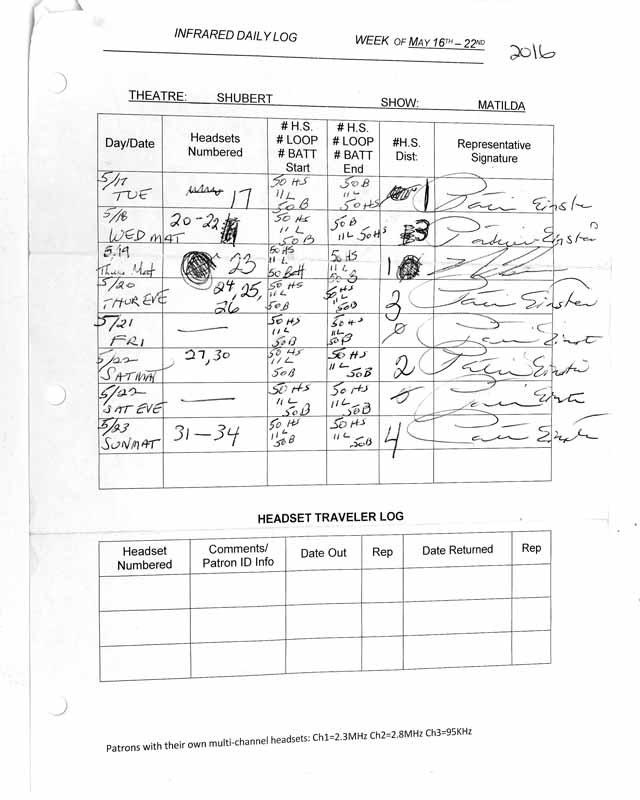 INFRARED DAILY LOG WEEK OF MAY 16TH – 22ND 2016
THEATRE: SHUBERT SHOW: MATILDA
Day/Date Headsets Numbered # H.S. # LOOP # BATT Start # H.S. # LOOP # BATT End #H.S. Dist: Representative Signature
5/17 TUE 17 50 HS 11 L 50 B 50 B 11 L 50 HS 1
5/18 WED MAT 20-22 50 HS 11 L 50 B 50 B 11 L 50 HS 3
5/19 Thurs Mat 23 50 HS 11 L 50 Batt 50 HS 11 L 50 B 1
5/20 THUR EVE 24, 25, 26 50 HS 11 L 50 B 50 HS 11 L 50 B 3
5/21 FRI — 50 HS 11 L 50 B 50 HS 11 L 50 B
5/22 SAT MAT 27, 30 50 HS 11 L 50 B 50 HS 11 L 50 B 2
5/22 SAT EVE — 50 HS 11 L 50 B 50 HS 11 L 50 B
5/23 SUN MAT 31 – 34 50 HS 11 L 50 B 50 HS 11 L 50 B 4
HEADSET TRAVELER LOG
Headset Numbered Comments/ Patron ID Info Date Out Rep Date Returned Rep
Patrons with their own multi-channel headsets: Ch1=2.3MHz Ch2=2.8MHz Ch3=95KHz